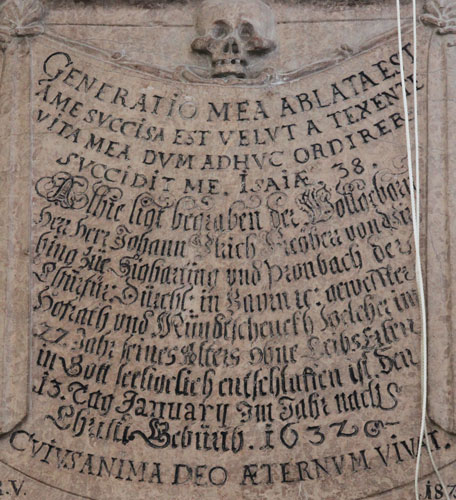 GENERATIO MEA ABLATA EST
A ME SVCCISA EST VELVT A TEXENTE
VITA MEA DVM ADHVC ORDIRER
SVCCIDIT ME. ISAIÆ 38.
Alhie ligt begraben der Wollgeborn
Herr Herr Johann Ulrich von
king zue Sigharting und Pronbach der
Churfür: Dürchl: in Bayrn ꝛc: gewester
Hofrath und Mündtschenckh Welcher im
27 Jahr seines Alters ohne Leibs Erben
in Gott seeligelich entschlaffen ist den
13. Tag January Im Jahr nach
Christi Gebürth. 1632
CVIVS ANIMA DEO ÆTERNVM VIVAT.
R.V.